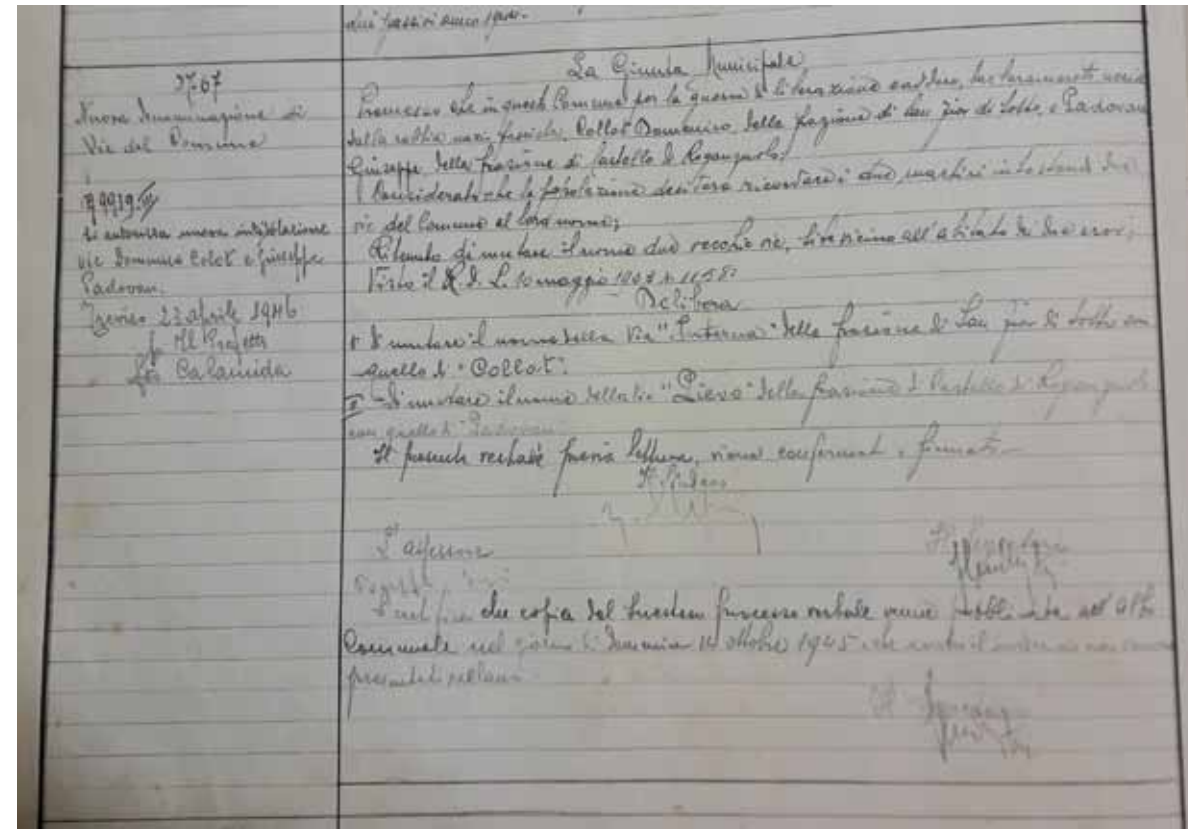 N. 67
Nuova denominazione di
Vie del Comune
N 9919
Si autorizza nuova intitolazione
vie Domenico Colot e Giuseppe
Padovan.
Treviso 23 aprile 1946
Il Prefetto
fto Calamida
La Giunta Municipale
Premesso che in questo Comune per la guerra di liberazione caddero,
dalla rabbia nazi fascista, Collot Domenico, della frazione di San Fior di Sotto, e Padovan
Giuseppe della frazione di Castello di Roganzuolo;
Considerato che la popolazione desidera ricordare i due martiri intestando due
vie del Comune al loro nome;
Ritenuto di mutare il nome due vecchie vie, site vicino all'abitato dei due eroi;
Visto il R. D. L. 10 maggio 1923 n. 1158:
Delibera
I Di mutare il nome della Via "Interna" della frazione di San Fior di Sotto con
quello di "Collot":
II Di mutare il nome della Via "Pieve" della frazione di Castello di Roganzuolo
con quello di "Padovan"
Il presente verbale previa lettura, viene confermato e firmato
Il Sindaco
L'assessore
Il Segretario
che copia del suesteso processo verbale venne pubblicata all'albo
Comunale nel giorno di Domenica 14 ottobre 1945 e che contro il medesimo non vennero
presentati reclami
Il Segretario